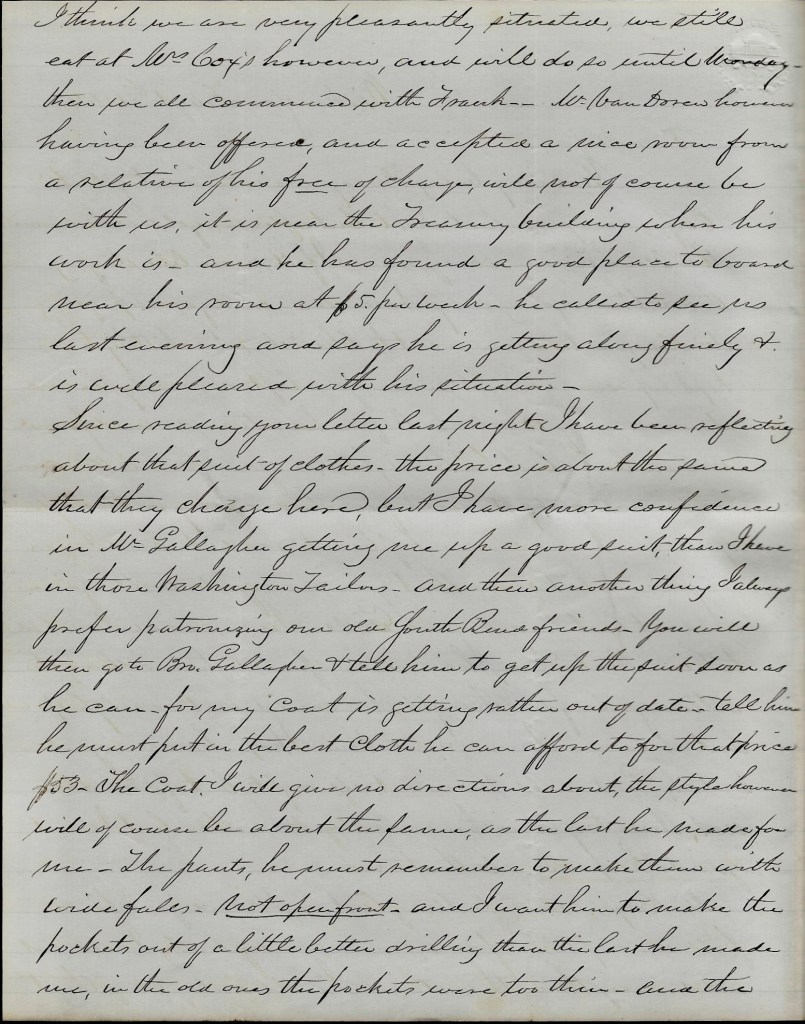 I think we are very pleasantly situated, we still
eat at Mrs Cox's however, and will do so until Monday -
then we all commence with Frank -- Mr. Van Doren however
having been offered, and accepted a nice room from
a relative of his free of charge, will not of course be
with us, it is near the Treasury building where his
work is - and he has found a good place to board
near his room at $5. per week - he called to see us
last evening and says he is getting along finely &.
is well pleased with his situation -
Since reading your letter last night I have been reflecting
about that suit of clothes - the price is about the same
that they charge here, but I have more confidence
in Mr Gallagher getting me up a good suit, than I have
in those Washington Tailors - and then another thing I always
prefer patronizing our old South Bend friends - You will
then go to Bro. Gallagher & tell him to get up the suit soon as
he can - for my Coat is getting rather out of date - tell him
he must put in the best Cloth he can afford to for that price
$53 - The Coat, I will give no directions about, the style however
will of course be about the same, as the last he made for
me - The pants, he must remember to make them with
wide falls - not open front - and I want him to make the
pockets out of a little better drilling than the last he made
me, in the old ones the pockets were too thin - and the